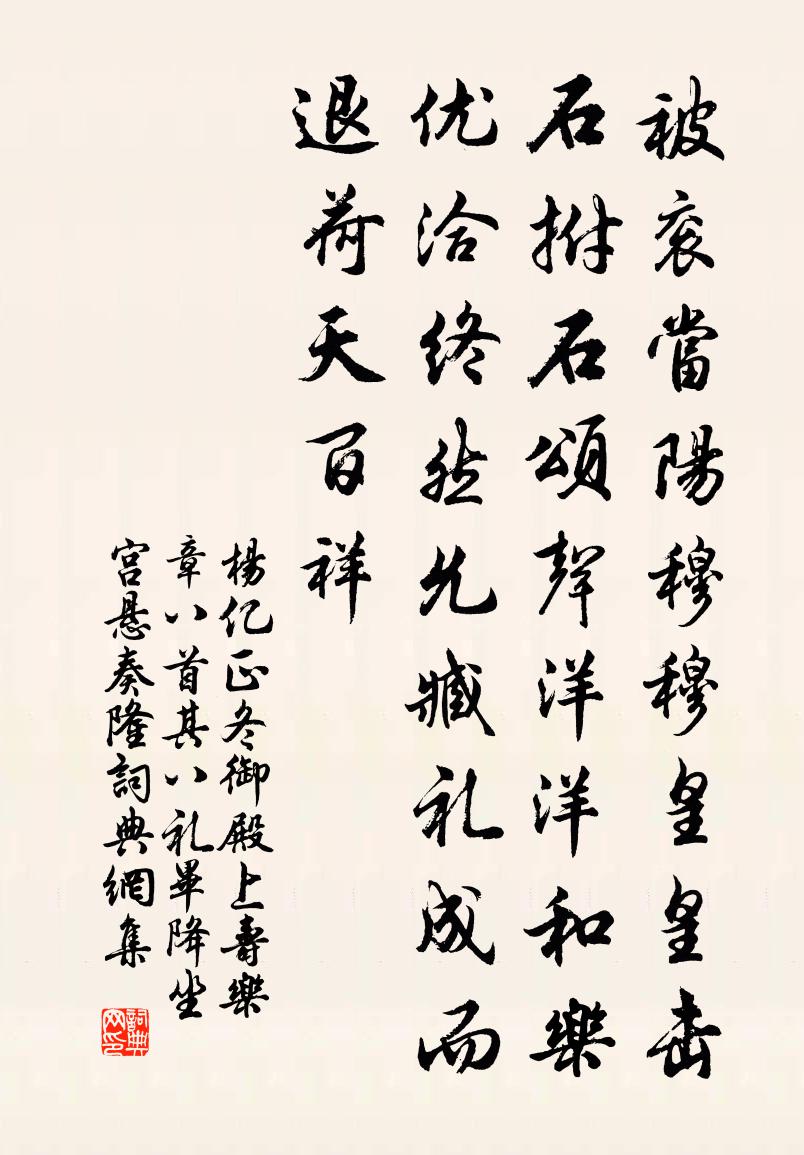 被衮當陽穆穆皇皇击
石拊石頌聲洋洋和樂
优洽終然允臧礼成而
退荷天百祥
楊亿正冬御殿上壽樂
章八首其八礼畢降坐
宫悬奏隆詞典網集
詞典网印